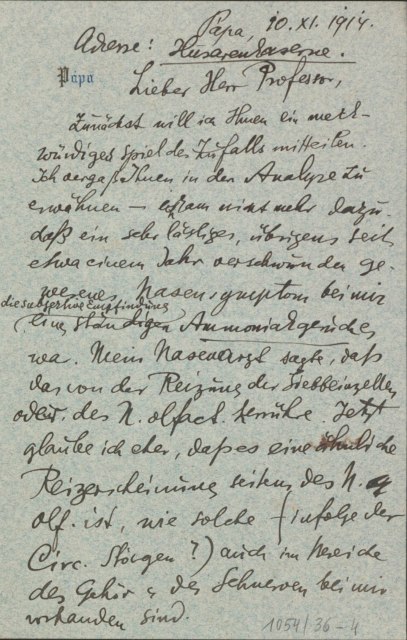 Pápa, 10. XI. 1914.
Adresse: Husarenkaserne.
Pápa
Lieber Herr Professor,
Zunächst will ich Ihnen ein merk-
würdiges Spiel des Zufalls mitteilen.
Ich vergaß Ihnen in der Analyse zu
erwähnen — kam nicht mehr dazu.
daß ein sehr lästiges, übrigens seit
etwa einem Jahr verschwunden ge-
wesenes Nasensymptom bei mir
die subjektive Empfindung
eines ständigen Ammoniakgeruches
war. Mein Nasenarzt sagte, daß
das von der Reizung der Siebbeinzellen
oder des N. olfact. herrühre. Jetzt
glaube ich eher, daß es eine ähnliche
Reizerscheinung seitens des N.
olf. ist, wie solche (infolge der
Circ. Störgen ?) auch im Bereiche
des Gehör u des Sehnerven bei mir
vorhanden sind.
1054/36-4